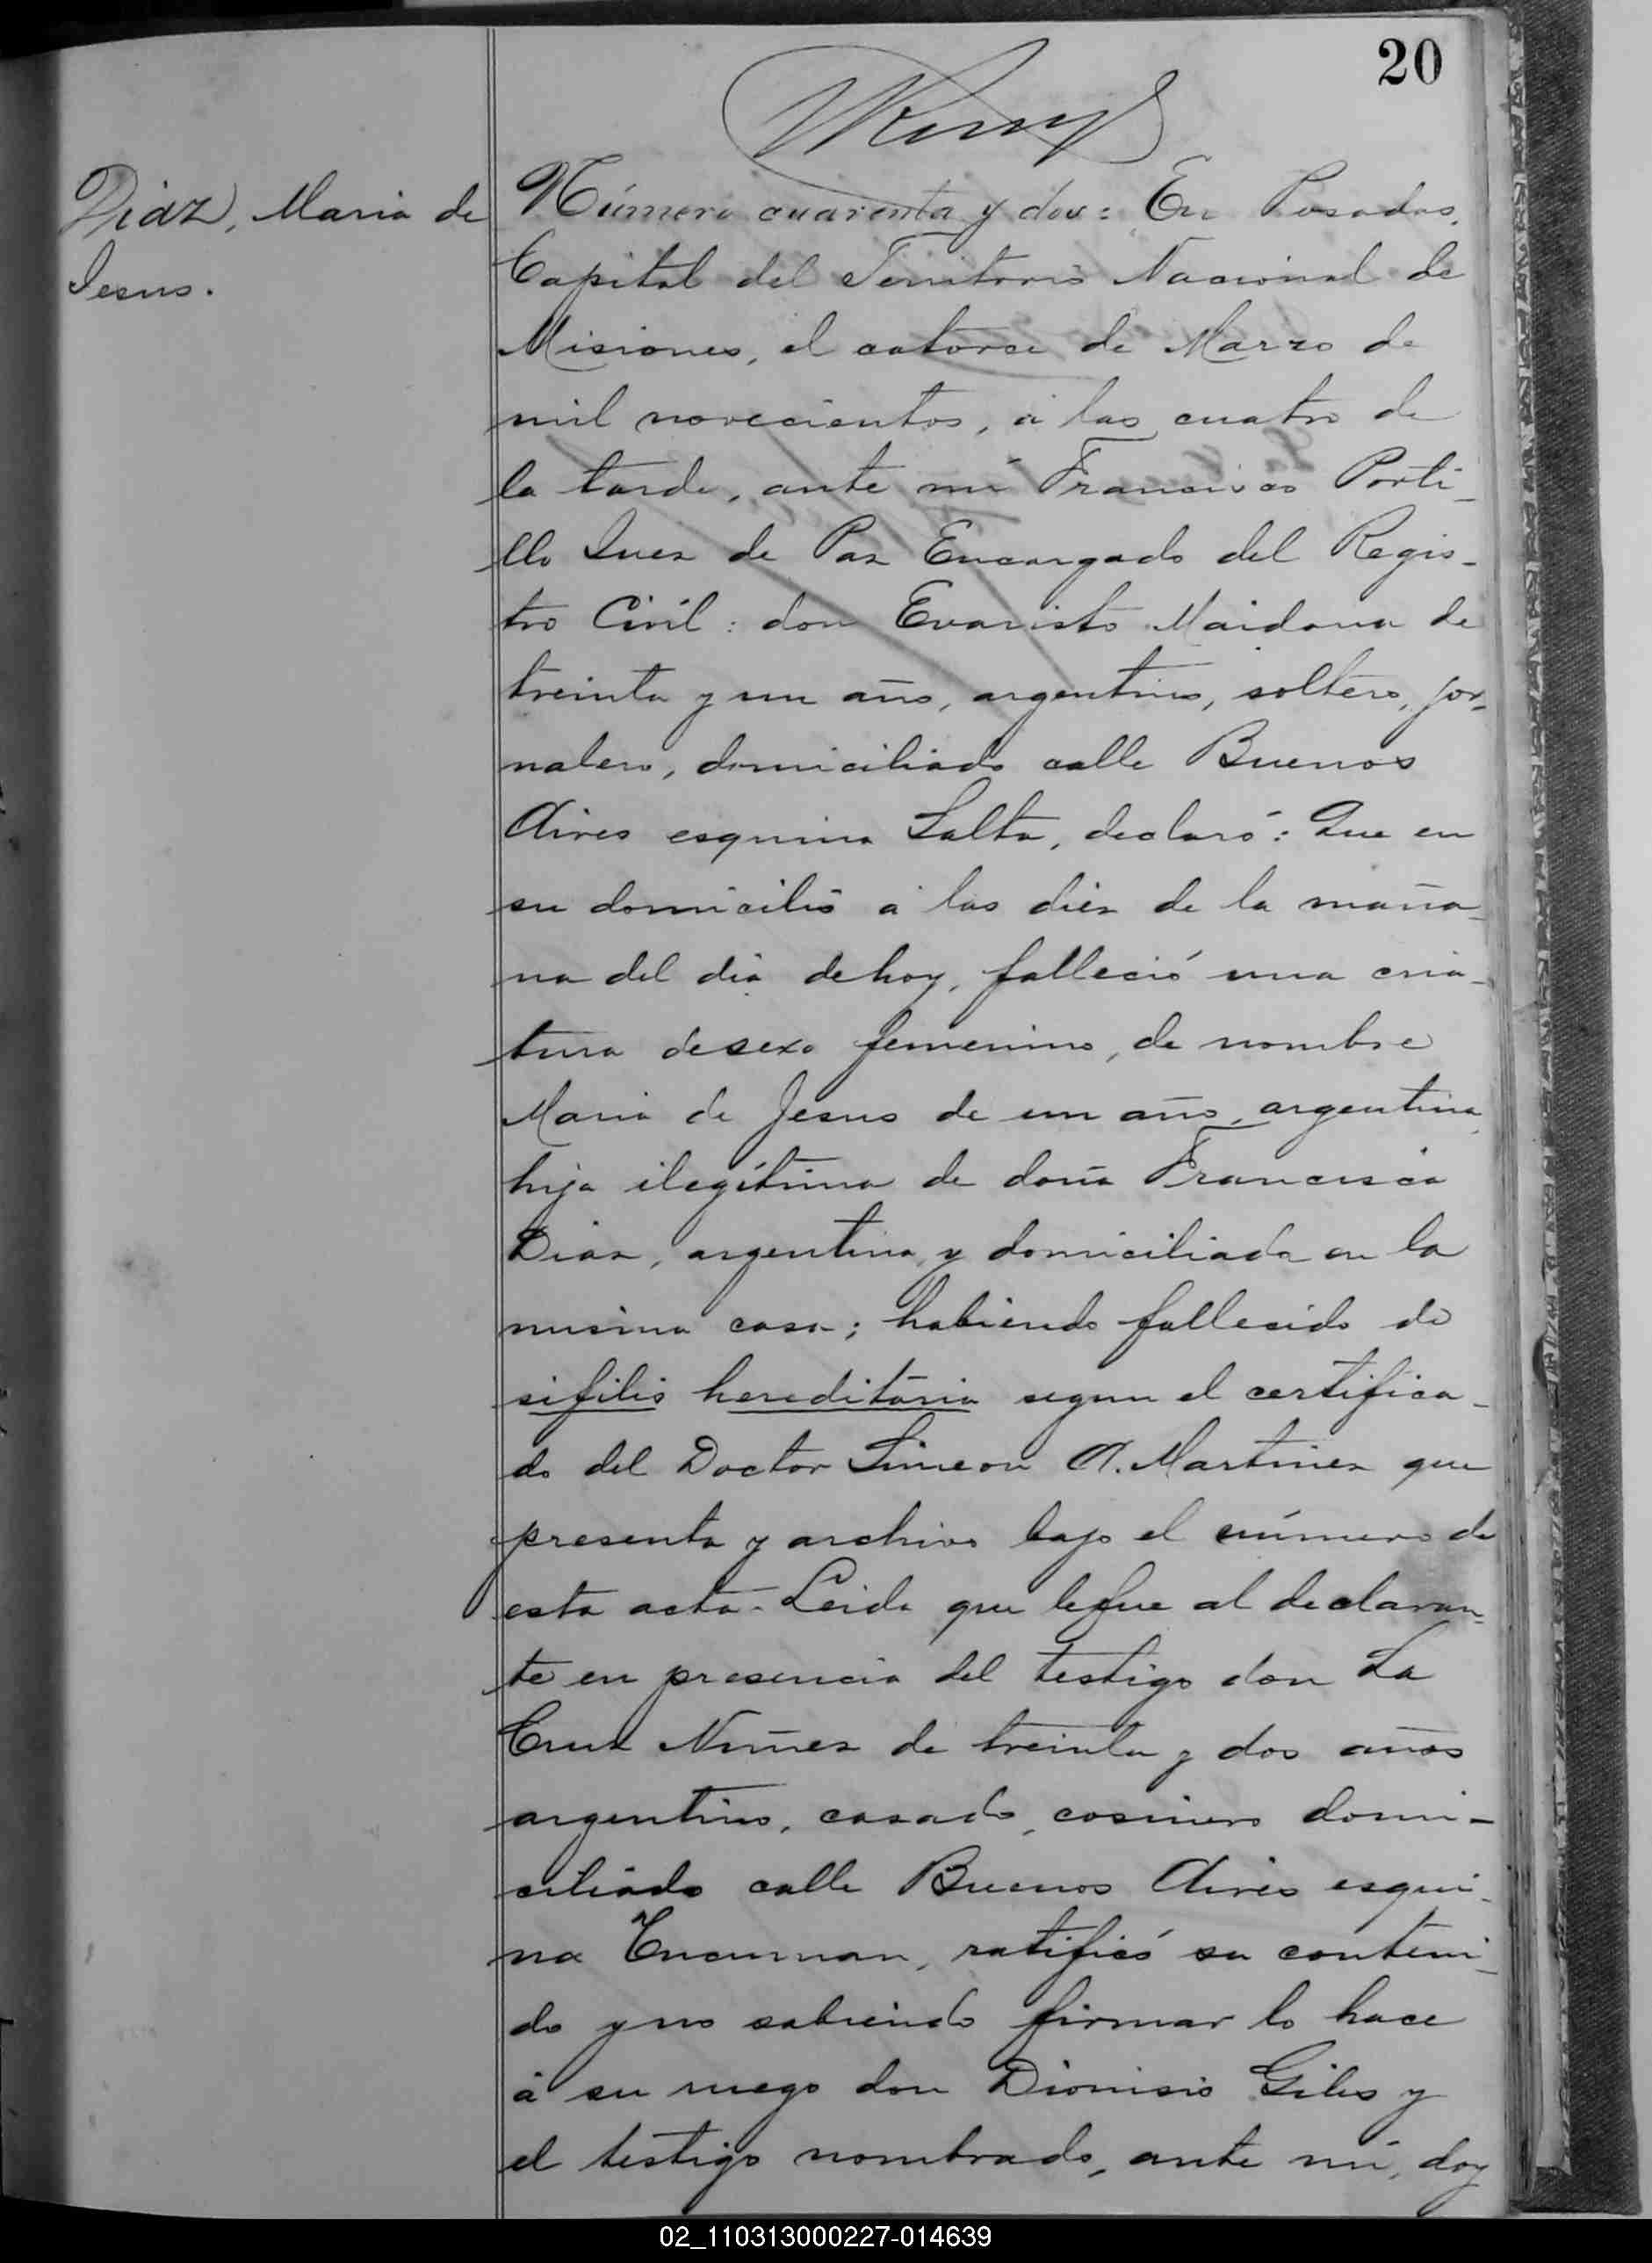 20
Diaz, Maria de
Jesus.
Número cuarenta y dos: En Posadas,
Capital del Territorio Nacional de
Misiones, el catorce de Marzo de
mil novecientos, á las cuatro de
la tarde, ante mí Francisco Porti-
llo Juez de Paz Encargado del Regis-
tro Civil: don Evaristo Maidana de
treinta y un año, argentino, soltero, jor-
nalero, domiciliado calle Buenos
Aires esquina Salta, declaró: Que en
su domicilio á las diez de la maña-
na del dia de hoy, falleció una cria-
tura de sexo femenino, de nombre
Maria de Jesus de un año, argentina,
hija ilegítima de doña Francisca
Diaz, argentina y domiciliada en la
misma casa; habiendo fallecido de
sifilis hereditária segun el certifica-
do del Doctor Simeon A. Martinez que
presenta y archivo bajo el número de
esta acta. Leida que le fue al declaran-
te en presencia del testigo don La
Cruz Nuñez de treinta y dos años
argentino, casado, cosinero domi-
ciliado calle Buenos Aires esqui-
na Tucuman, ratificó su conteni-
do y no sabiendo firmar lo hace
á su ruego don Dionisio Giles y
el testigo nombrado, ante mí, doy
02_110313000227-014639